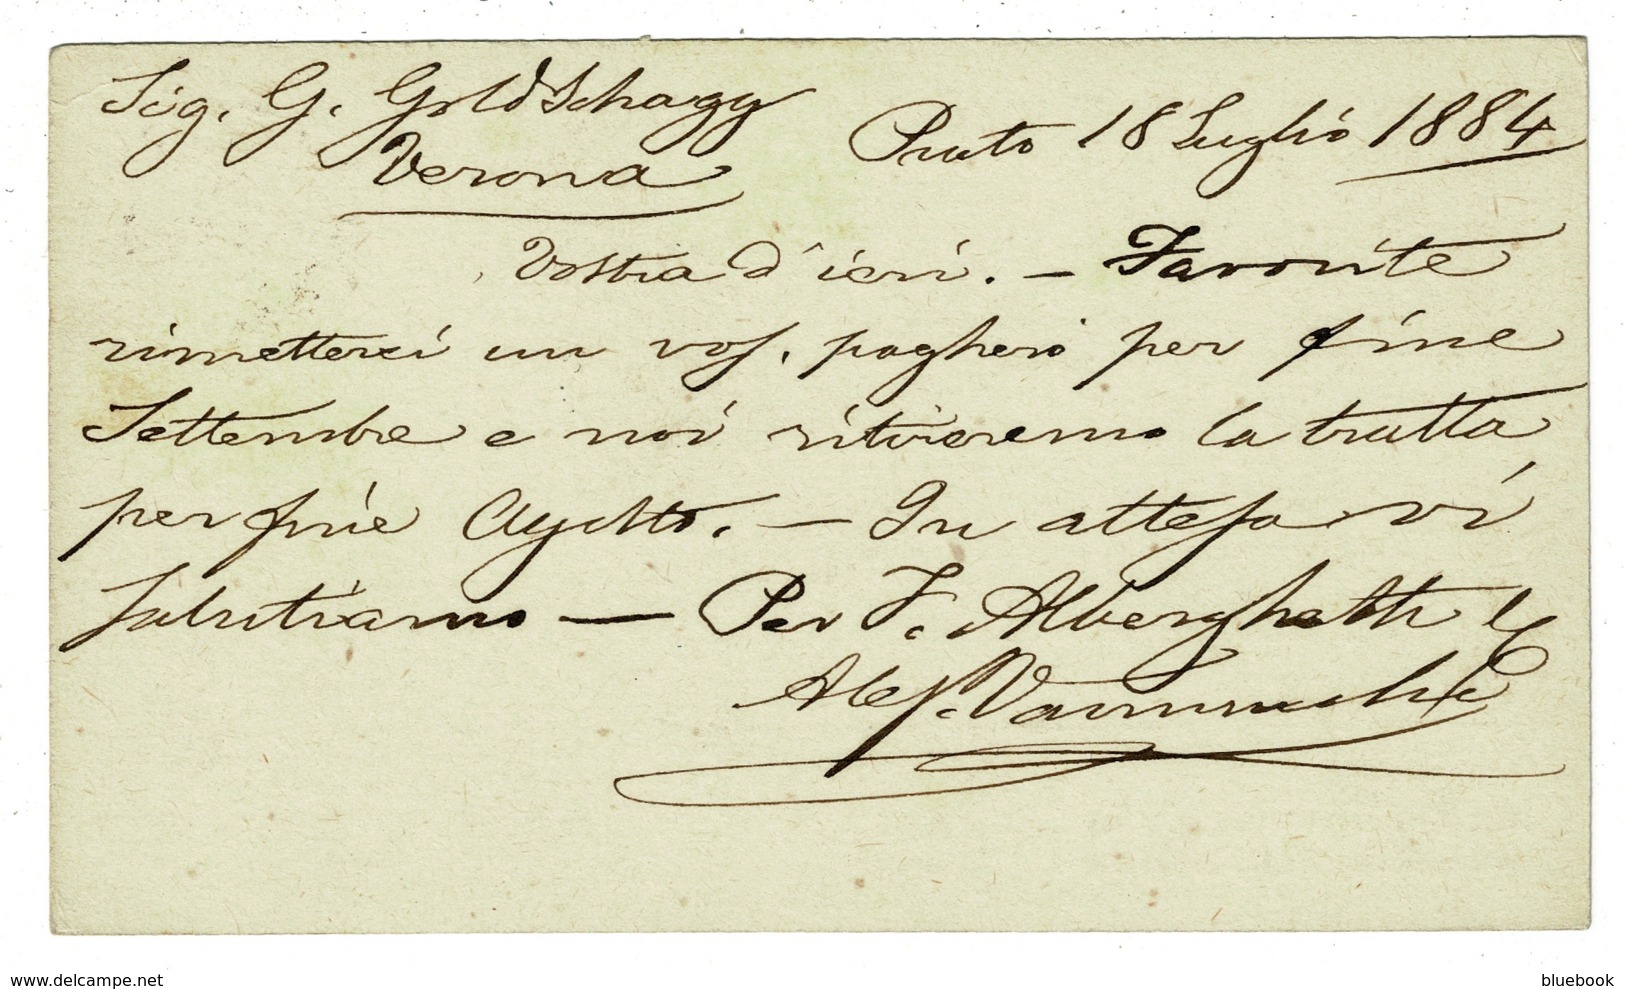 Sig. G. Goldschagg
Verona
Prato 18 Luglio 1884
Vostra d'ieri. — Favorite
rimetterci un vos. pagherò per fine
Settembre e noi ritireremo la tratta
per fine Agosto. — In attesa vi
salutiamo — Per F. Alberghetti
Aless. Vannucchi
delcampe.net
bluebook